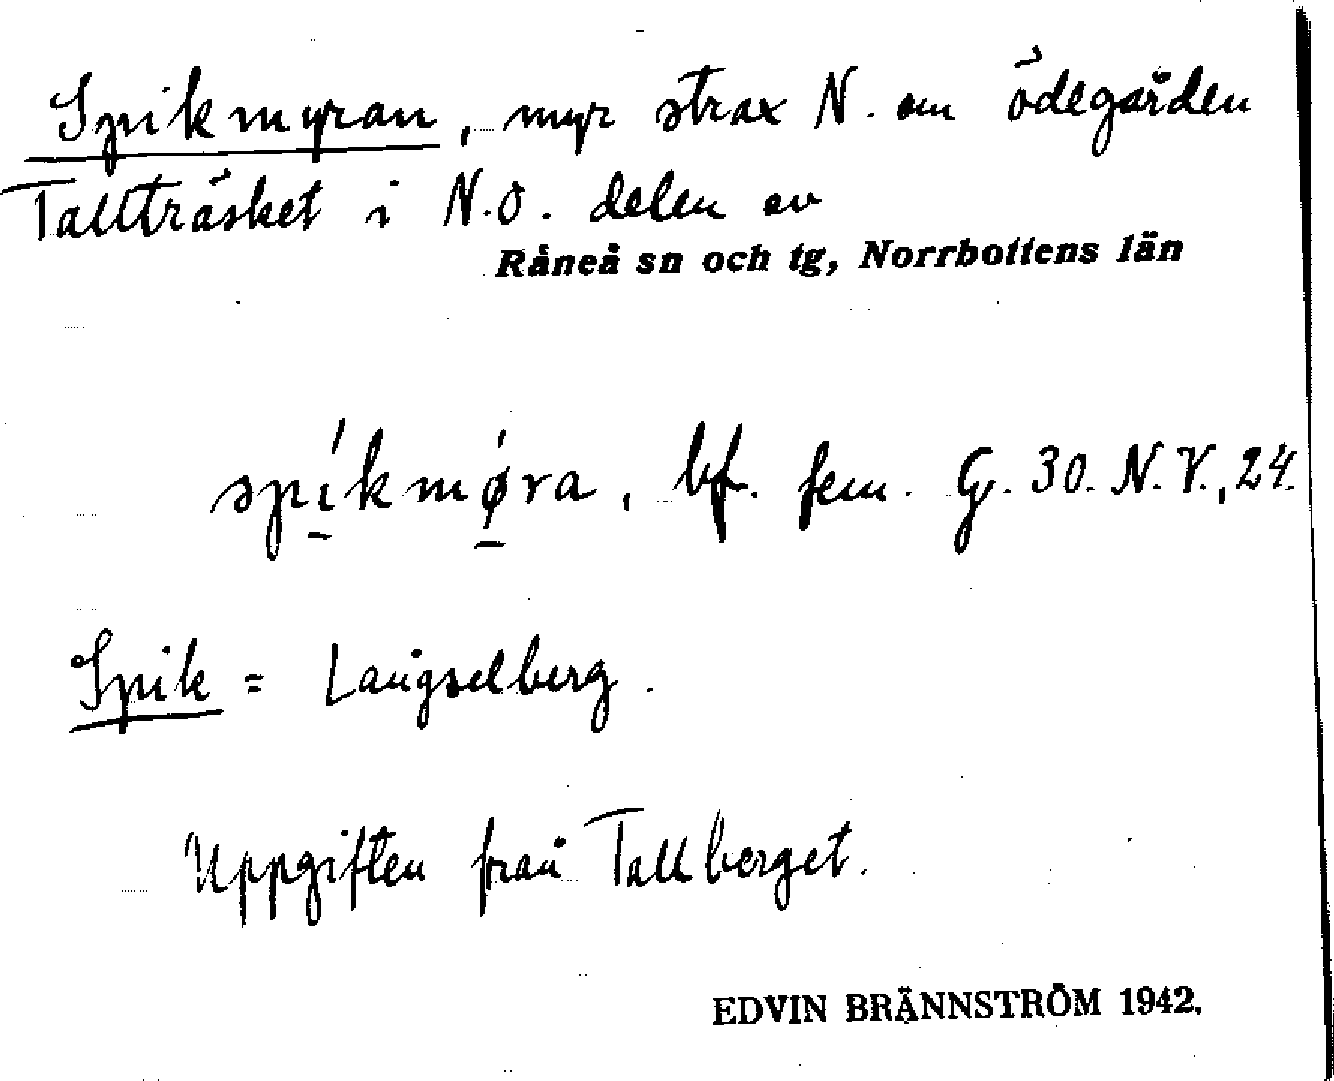 Spikmyran, myr strax N. om ödegården
Tallträsket i N.O. delen av
Råneå sn och tg, Norrbottens län
spíkmǿra, bf. fem. G. 30. N.V., 24.
Spik = Långselberg.
Uppgiften från Tallberget.
EDVIN BRÄNNSTRÖM 1942.